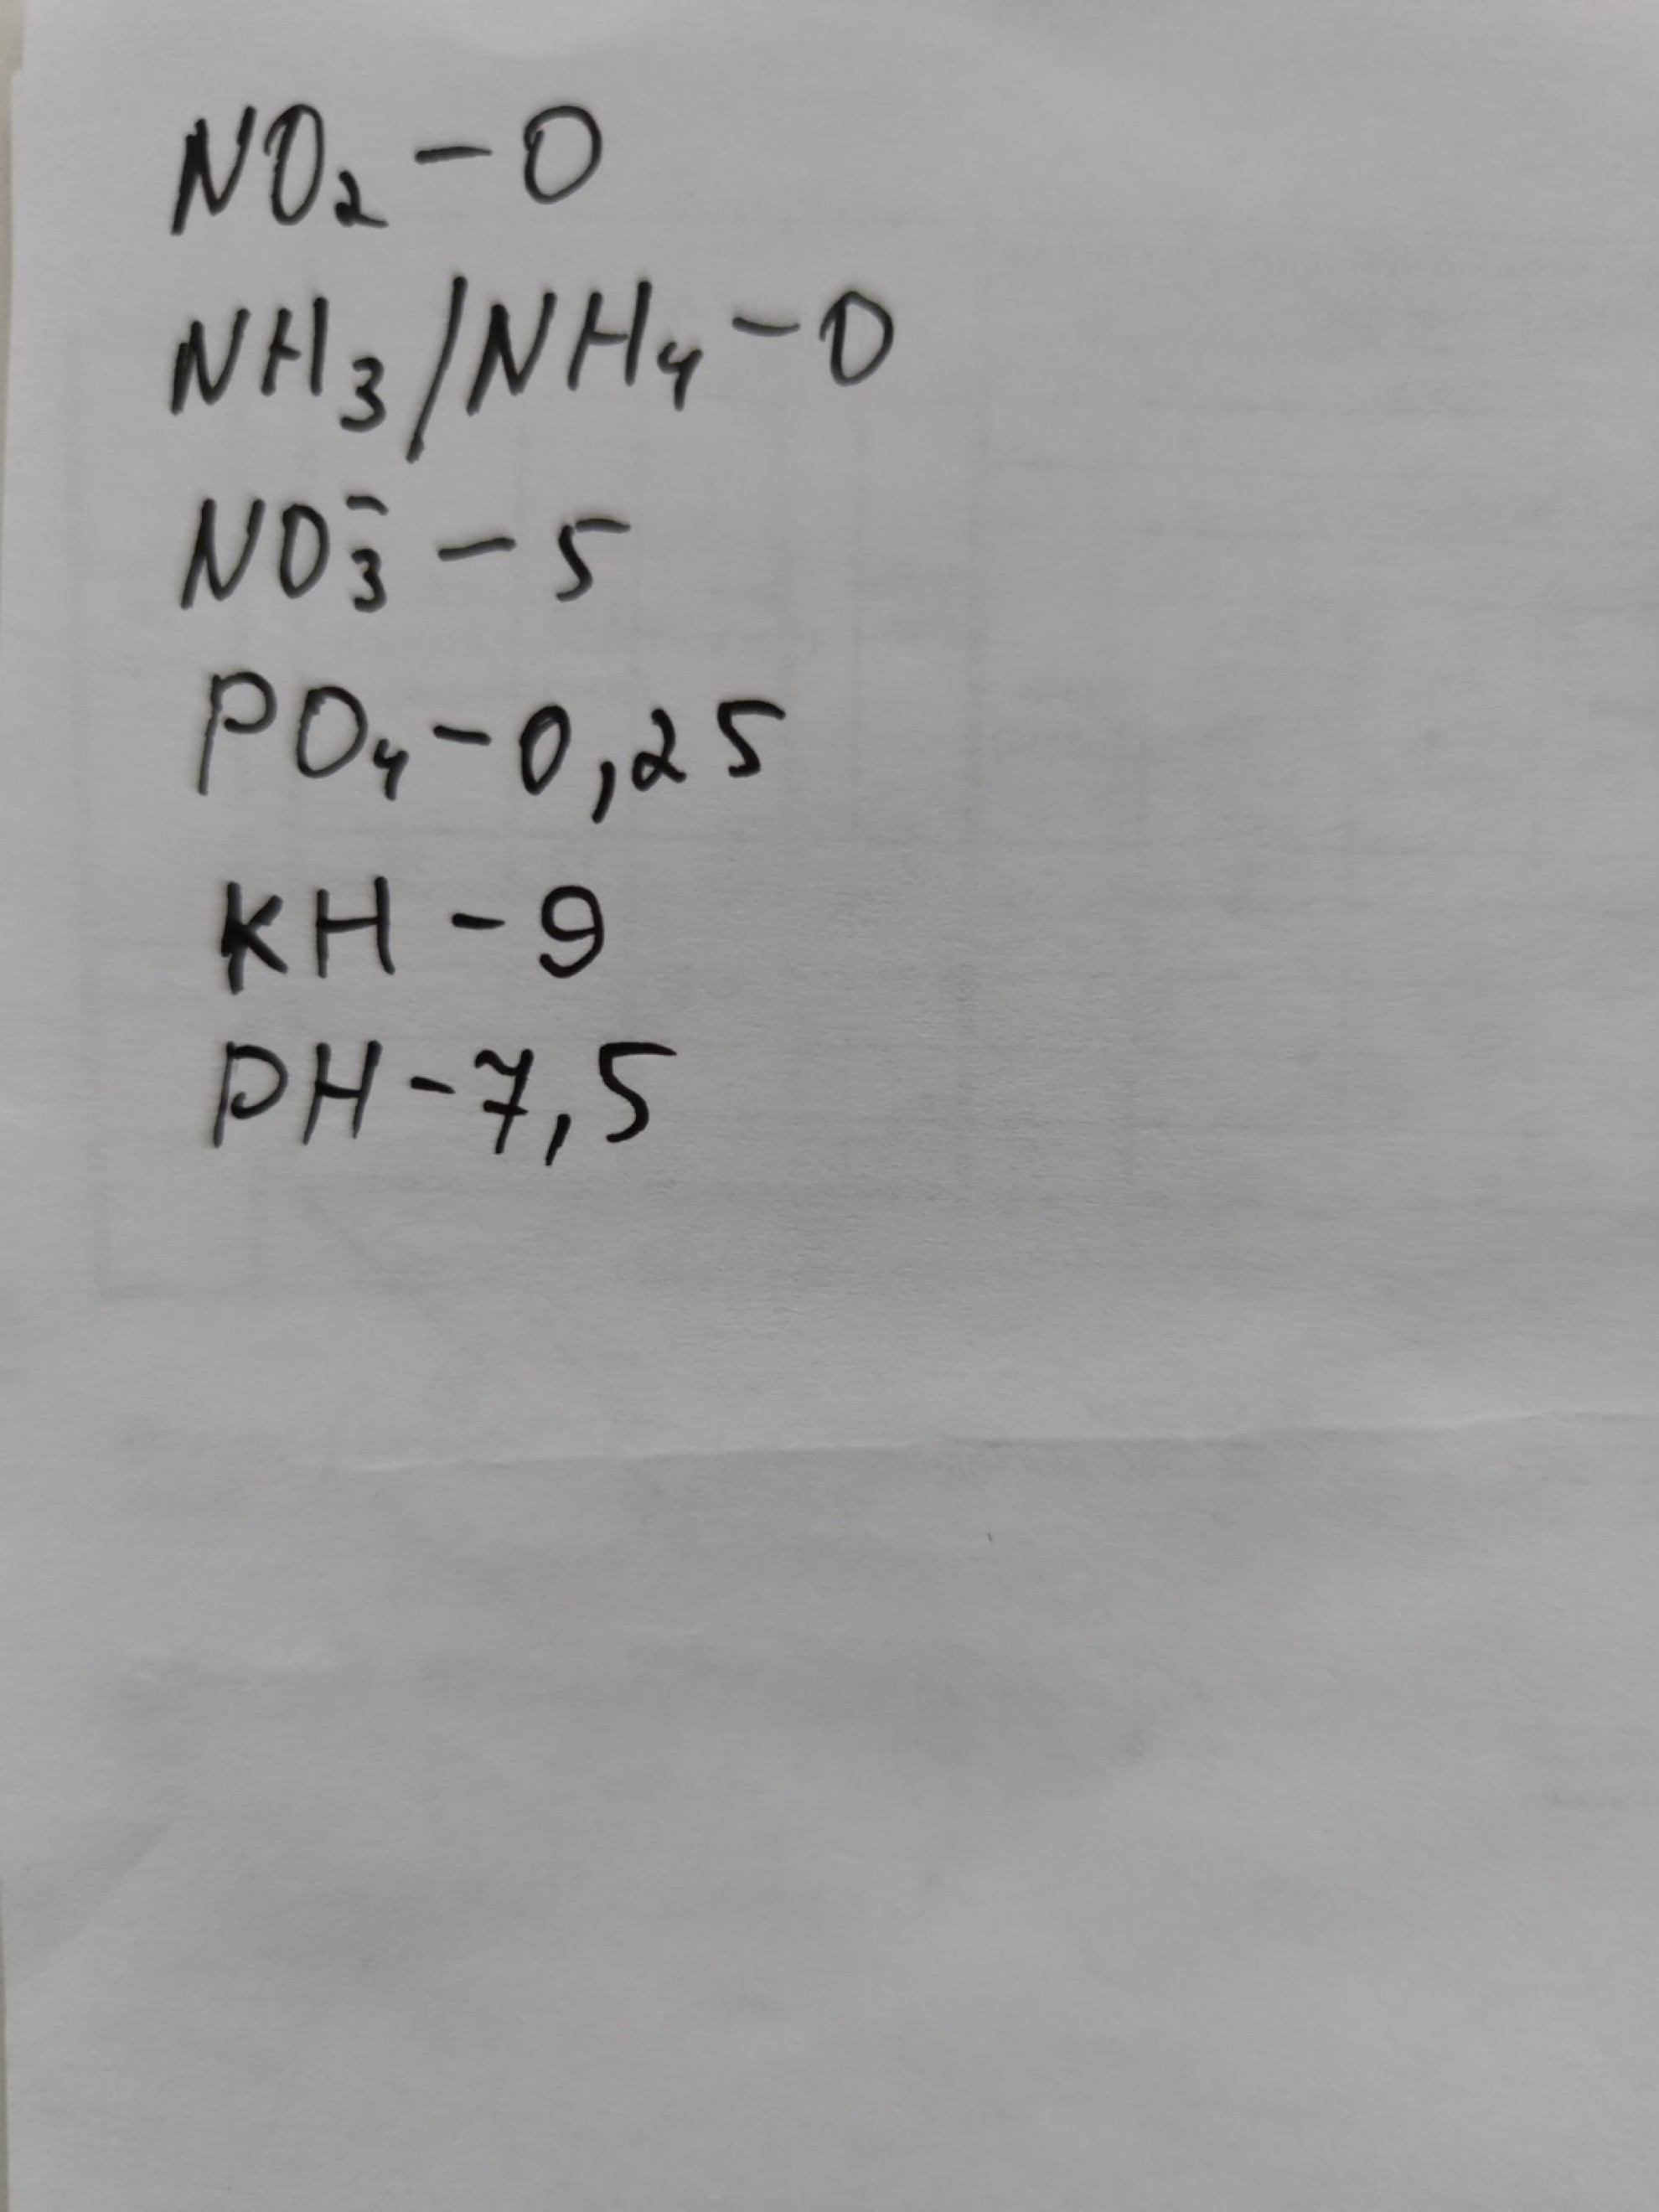 NO₂ - 0
NH₃/NH₄ - 0
NO₃⁻ - 5
PO₄ - 0,25
KH - 9
PH - 7,5